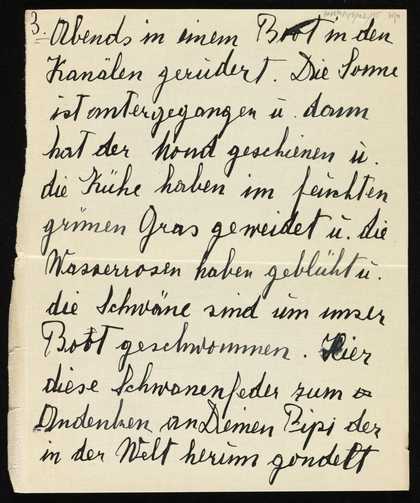 3. Abends in einem Boot in den
Kanälen gerudert. Die Sonne
ist untergegangen u. dann
hat der Mond geschienen u.
die Kühe haben im feuchten
grünen Gras geweidet u. die
Wasserrosen haben geblüht u.
die Schwäne sind um unser
Boot geschwommen. Hier
diese Schwanenfeder zum
Andenken an Deinen Pipi der
in der Welt herum gondelt